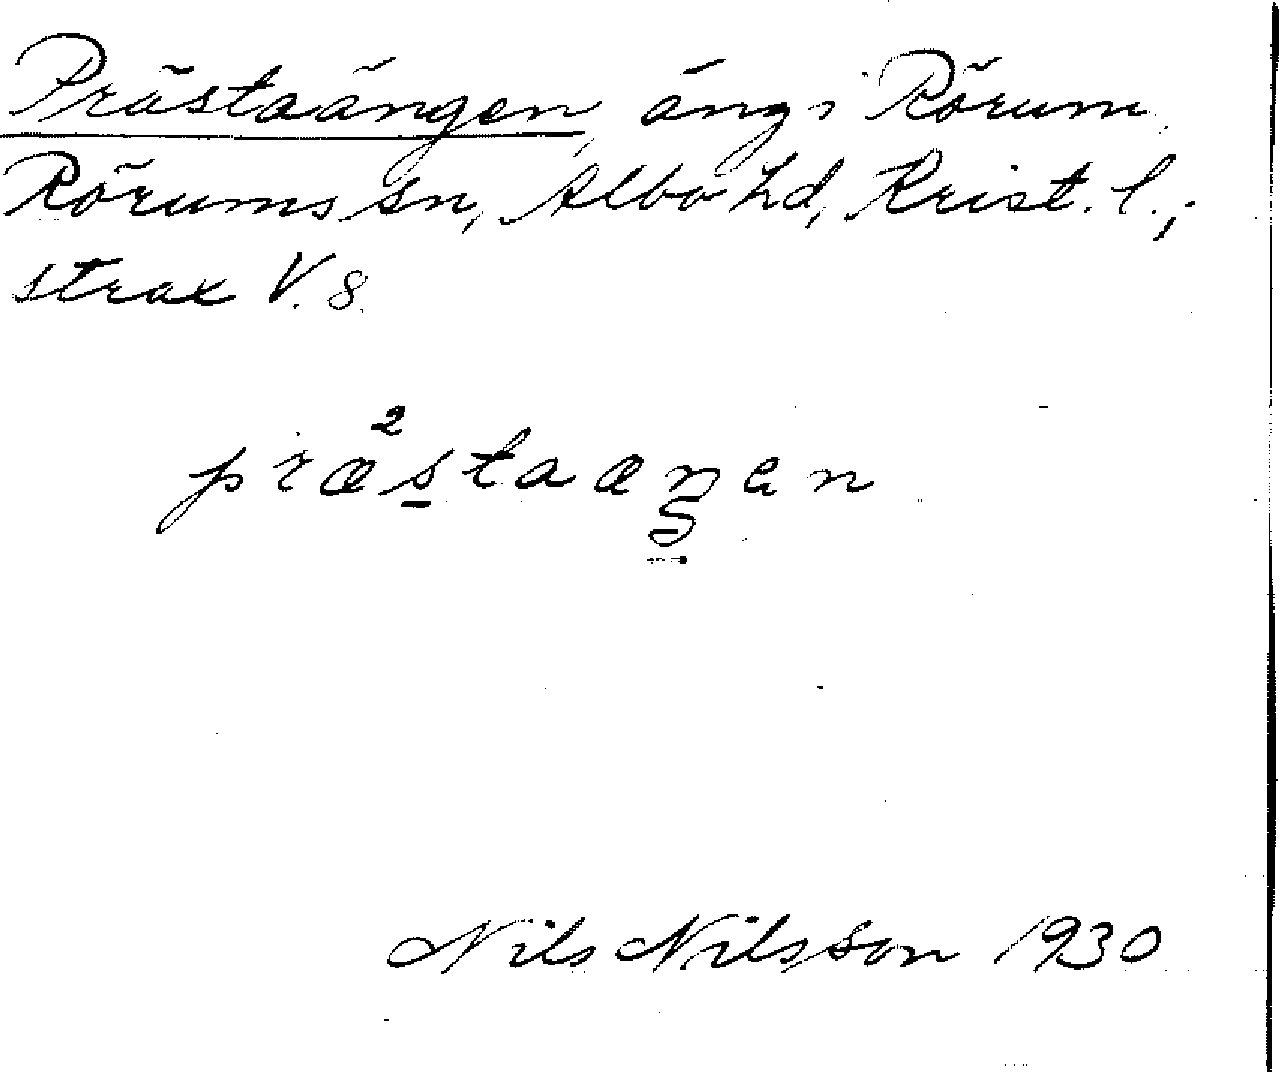 Prästaängen, äng i Rörum
Rörums sn, Albo hd, Krist. l.;
strax V. 8.
præ²staæŋen
Nils Nilsson 1930